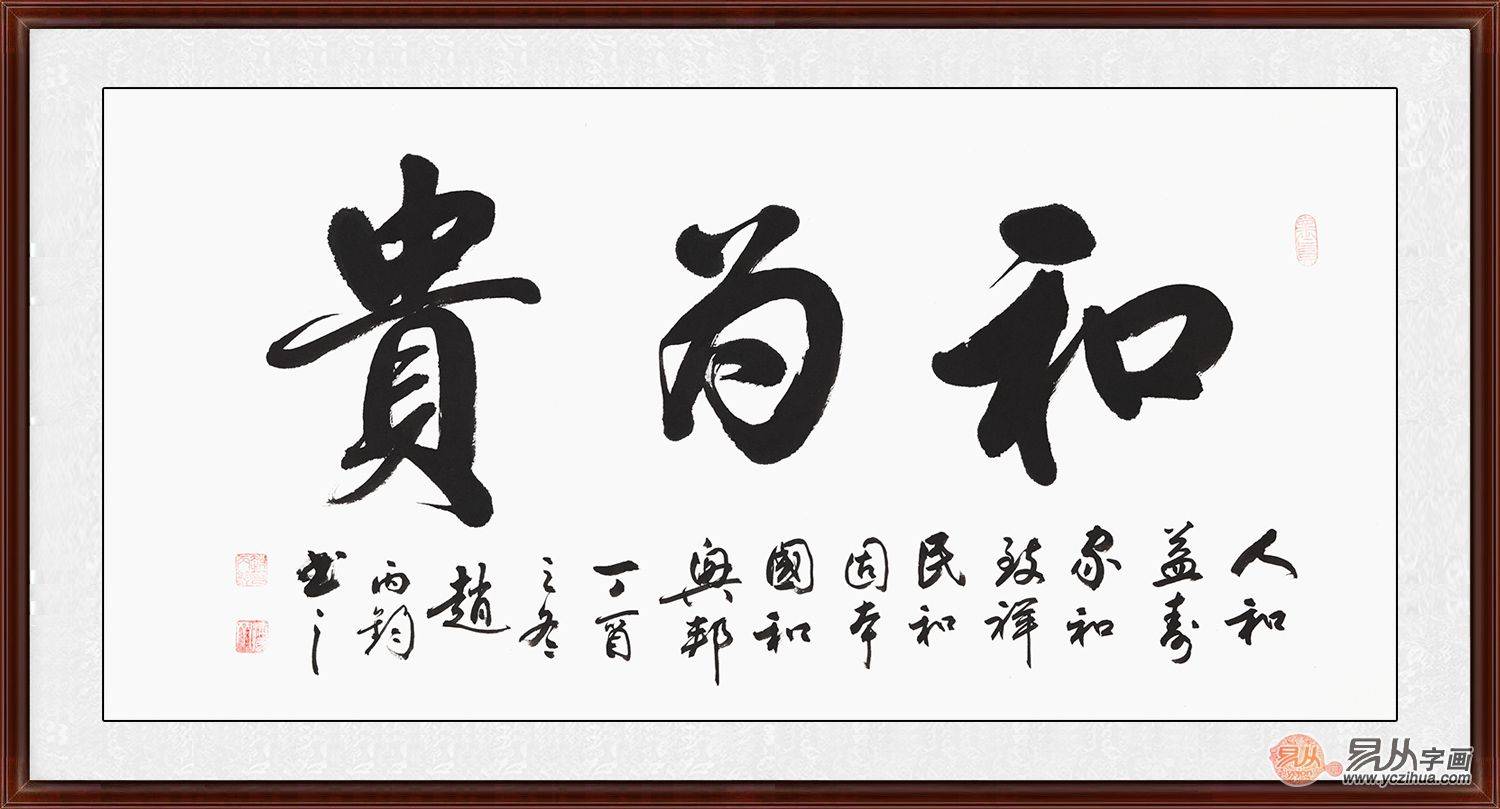 和为貴
人和
益寿
家和
致祥
民和
固本
國和
興邦
丁酉
之冬
趙
丙鈞
书之
易从
易从字画
www.yczihua.com